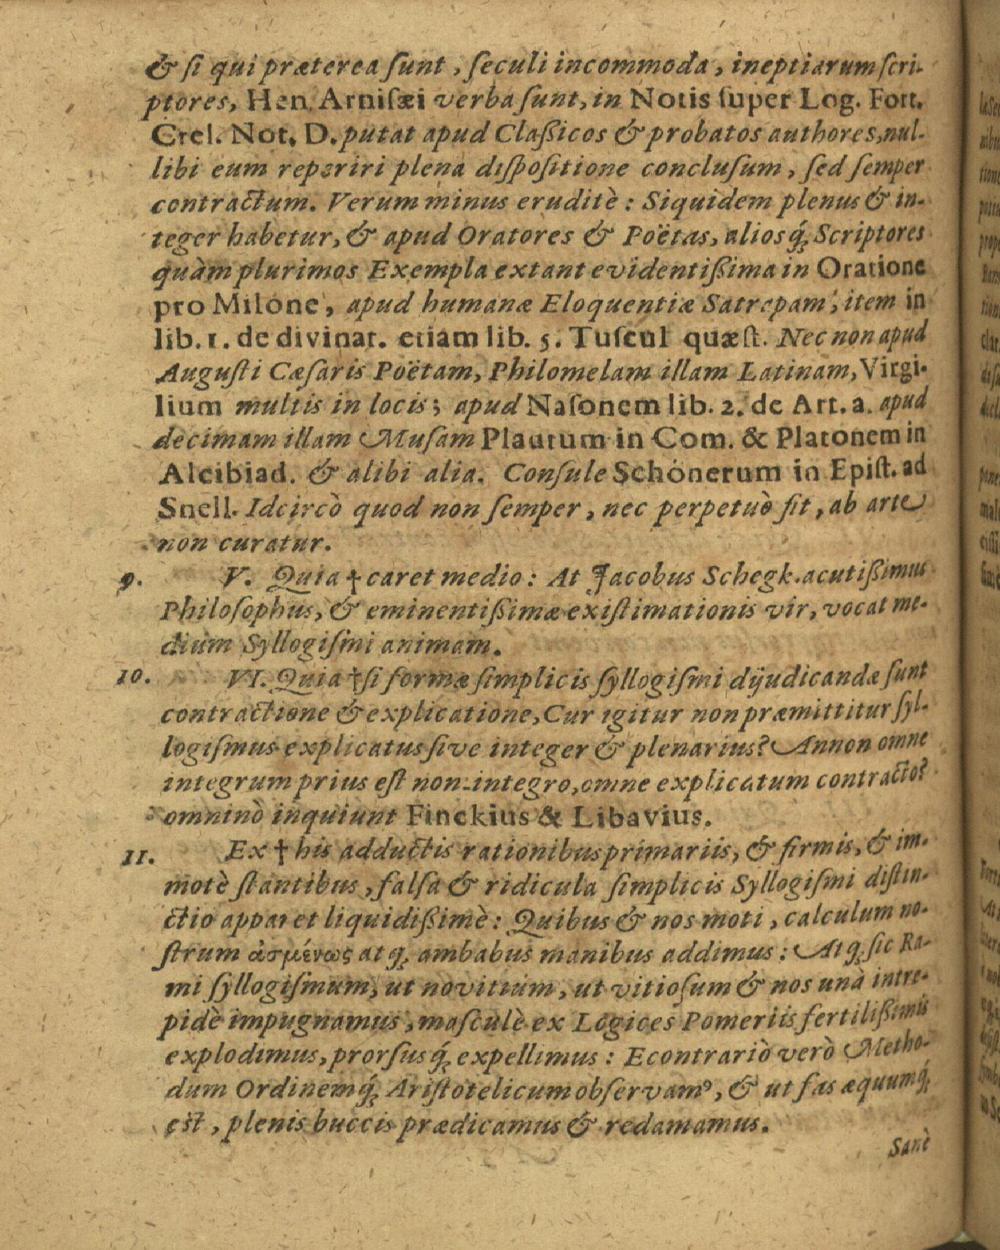 & ſi qui præterea ſunt, ſeculi incommoda, ineptiarum ſcri-
ptores, Hen. Arniſæi verba ſunt, in Notis ſuper Log. Fort.
Crel. Not. D. putat apud Claſſicos & probatos authores, nul-
libi eum reperiri plena diſpoſitione concluſum, ſed ſemper
contractum. Verum minus eruditè: Siquidem plenus & in-
teger habetur, & apud Oratores & Poëtas, aliosq́; Scriptores
quàm plurimos Exempla extant evidentißima in Oratione
pro Milone, apud humanæ Eloquentiæ Satrapam, item in
lib. 1. de divinat. etiam lib. 5. Tuſcul quæſt. Nec non apud
Auguſti Cæſaris Poëtam, Philomelam illam Latinam, Virgi-
lium multis in locis; apud Naſonem lib. 2. de Art. a. apud
decimam illam Muſam Plautum in Com. & Platonem in
Alcibiad. & alibi alia. Conſule Schónerum in Epiſt. ad
Snell. Idcircò quod non ſemper, nec perpetuò fit, ab arte
non curatur.
9. V. Quia † caret medio: At Jacobus Schegk. acutißimus
Philoſophus, & eminentißimæ exiſtimationis vir, vocat me-
dium Syllogiſmi animam.
10. VI. Quia † ſi formæ ſimplicis ſyllogiſmi dijudicandæ ſunt
contractione & explicatione, Cur igitur non præmittitur ſyl-
logiſmus explicatus ſive integer & plenarius? Annon omne
integrum prius eſt non-integro, omne explicatum contracto?
omninò inquiunt Finckius & Libavius.
11. Ex † his adductis rationibus primariis, & firmis, & im-
motè ſtantibus, falſa & ridicula ſimplicis Syllogiſmi diſtin-
ctio apparet liquidißimè: Quibus & nos moti, calculum no-
ſtrum ἀσμένως atq́; ambabus manibus addimus: Atq́; ſic Ra-
mi ſyllogiſmum, ut novitium, ut vitioſum & nos unà intre-
pidè impugnamus, maſculè ex Logices Pomeriis fertilißimis
explodimus, prorſusq́; expellimus: Econtrariò verò Metho-
dum Ordinemq́; Ariſtotelicum obſervamꝰ, & ut fas æquumq́;
eſt, plenis buccis prædicamus & redamamus.
Sanè